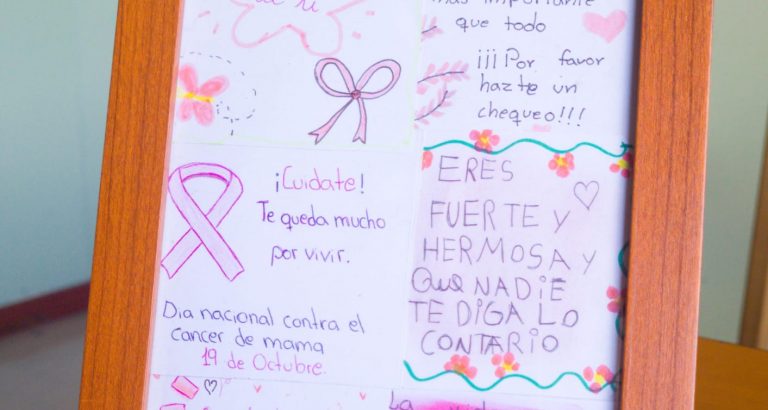 a ti
más importante
que todo
¡¡¡Por favor
hazte un
chequeo!!!
¡Cuidate!
Te queda mucho
por vivir.
Dia nacional contra el
cancer de mama
19 de Octubre.
ERES
FUERTE Y
HERMOSA Y
QUE NADIE
TE DIGA LO
CONTARIO
La